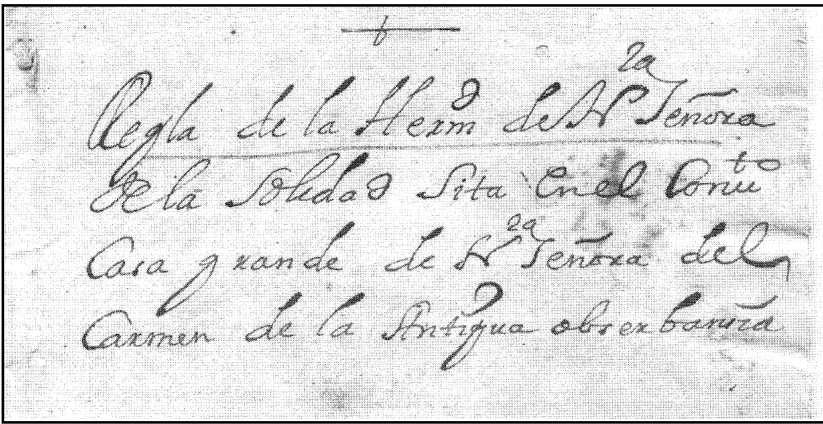 ✝
Regla de la Hermd de Nra Señora
de la Soledad Sita En el Convto
Casa grande de Nra Señora del
Carmen de la Antigua obserbancia